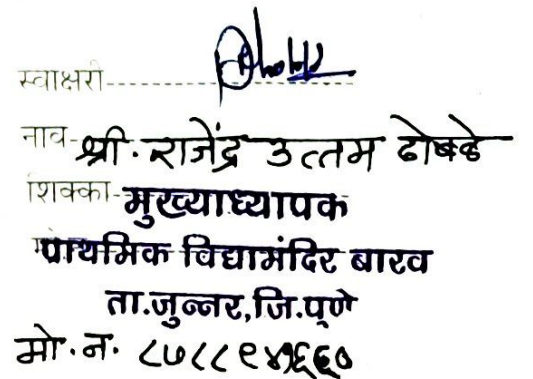 स्वाक्षरी
नाव श्री. राजेंद्र उत्तम ढोबळे
शिक्का मुख्याध्यापक
प्राथमिक विद्यामंदिर बारव
ता.जुन्नर,जि.पुणे
मो.न.